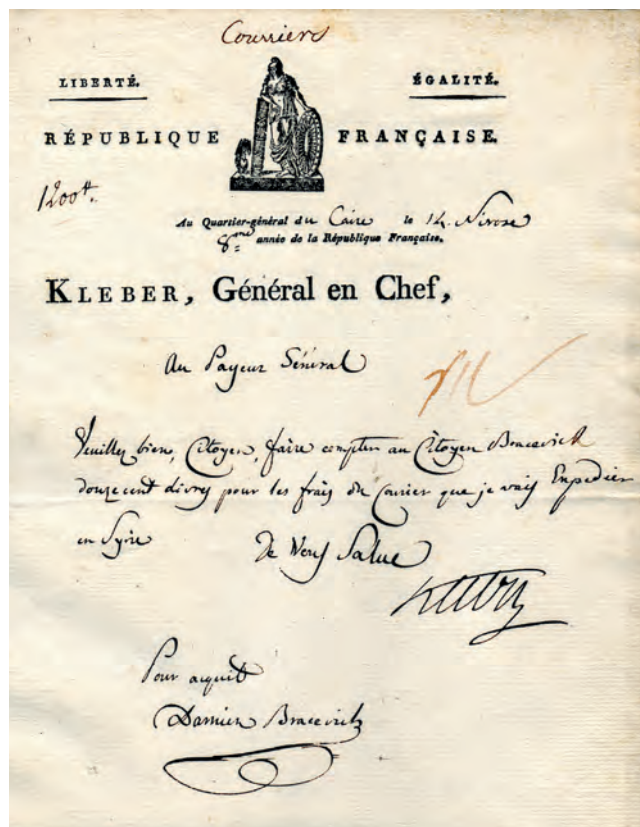 Courriers
LIBERTÉ. ÉGALITÉ.
RÉPUBLIQUE FRANÇAISE.
1200#.
Au Quartier-général du Caire le 14. Nivose
8me année de la République Française.
KLEBER, Général en Chef,
Au Payeur Général
Veuillez bien, Citoyen, faire compter au Citoyen Bracevich
douze cent livres pour les frais du Courier que je vais Expedier
en Syrie
Je Vous Salue
Kleber
Pour acquit
Damien Bracevich